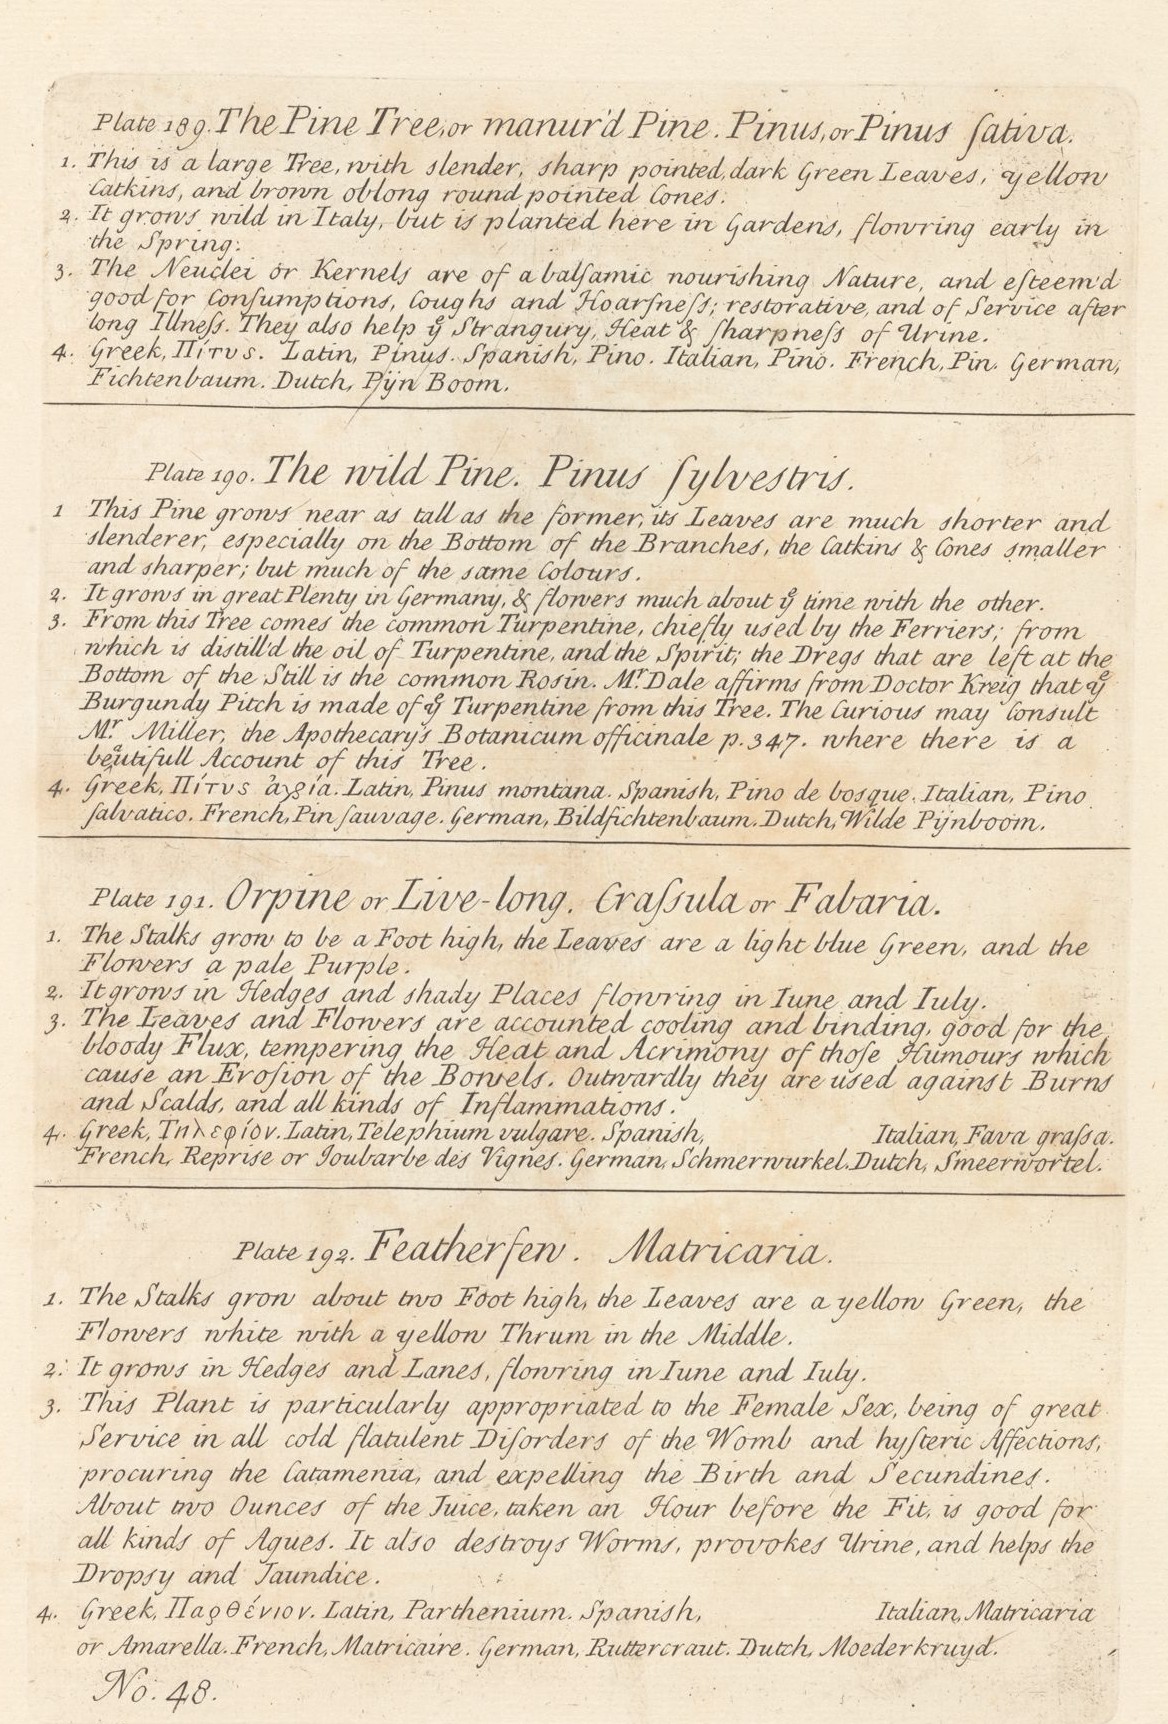 Plate 189. The Pine Tree, or manur'd Pine. Pinus, or Pinus ſativa.
1. This is a large Tree, with slender, sharp pointed, dark Green Leaves, yellow
Catkins, and brown oblong round pointed Cones.
2. It grows wild in Italy, but is planted here in Gardens, flowring early in
the Spring.
3. The Neuclei or Kernels are of a balſamic nourishing Nature, and eſteem'd
good for Conſumptions, Coughs and Hoarſneſs; restorative, and of Service after
long Illneſs. They also help yͤ Strangury, Heat & ſharpneſs of Urine.
4. Greek, Πίτυς. Latin, Pinus. Spanish, Pino. Italian, Pino. French, Pin. German,
Fichtenbaum. Dutch, Pyn Boom.
Plate 190. The wild Pine. Pinus ſylvestris.
1 This Pine grows near as tall as the former, its Leaves are much shorter and
slenderer, especially on the Bottom of the Branches, the Catkins & Cones smaller
and sharper; but much of the same Colours.
2. It grows in great Plenty in Germany, & flowers much about yͤ time with the other.
3. From this Tree comes the common Turpentine, chiefly used by the Ferriers; from
which is distill'd the oil of Turpentine, and the Spirit; the Dregs that are left at the
Bottom of the Still is the common Rosin. Mr. Dale affirms from Doctor Kreig that yͤ
Burgundy Pitch is made of yͤ Turpentine from this Tree. The Curious may Consult
Mr. Miller, the Apothecary's Botanicum officinale p. 347. where there is a
beautifull Account of this Tree.
4. Greek, Πίτυς ἀγρία. Latin, Pinus montana. Spanish, Pino de bosque. Italian, Pino
ſalvatico. French, Pin ſauvage. German, Bildfichtenbaum. Dutch, Wilde Pijnboom.
Plate 191. Orpine or Live-long. Craſsula or Fabaria.
1. The Stalks grow to be a Foot high, the Leaves are a light blue Green, and the
Flowers a pale Purple.
2. It grows in Hedges and shady Places flowring in Iune and Iuly.
3. The Leaves and Flowers are accounted cooling and binding, good for the
bloody Flux, tempering the Heat and Acrimony of thoſe Humours which
cause an Eroſion of the Bowels. Outwardly they are used against Burns
and Scalds, and all kinds of Inflammations.
4. Greek, Τηλεφίον. Latin, Telephium vulgare. Spanish, Italian, Fava graſsa.
French, Reprise or Joubarbe des Vignes. German, Schmerwurkel. Dutch, Smeerwortel.
Plate 192. Featherfew. Matricaria.
1. The Stalks grow about two Foot high, the Leaves are a yellow Green, the
Flowers white with a yellow Thrum in the Middle.
2. It grows in Hedges and Lanes, flowring in Iune and Iuly.
3. This Plant is particularly appropriated to the Female Sex, being of great
Service in all cold flatulent Diſorders of the Womb and hyſteric Affections,
procuring the Catamenia, and expelling the Birth and Secundines.
About two Ounces of the Juice, taken an Hour before the Fit, is good for
all kinds of Agues. It also destroys Worms, provokes Urine, and helps the
Dropsy and Jaundice.
4. Greek, Παρθένιον. Latin, Parthenium. Spanish, Italian, Matricaria
or Amarella. French, Matricaire. German, Ruttercraut. Dutch, Moederkruyd.
No. 48.